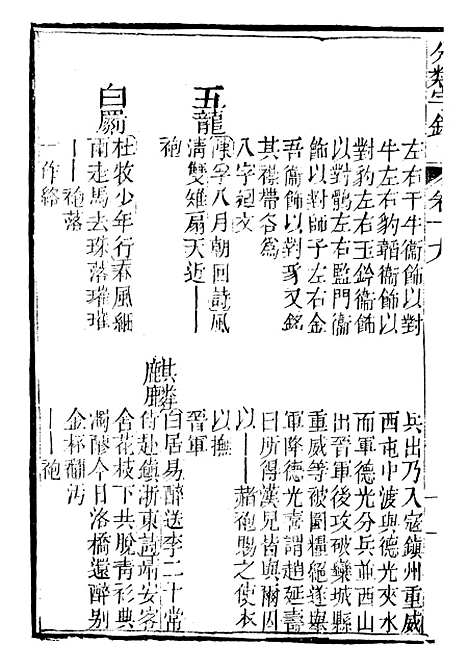 分類字錦
卷十六
左右千牛衞飾以對
牛左右豹韜衞飾以
對豹左右玉鈐衞飾
以對鶻左右監門衞
飾以對師子左右金
吾衞飾以對豸又銘
其襟帶各為
八字迴文
五龍
陳孚八月朝回詩風
淸雙雉扇天近——
袍
白罽
杜牧少年行春風細
雨走馬去珠落璀璀
——袍落
一作絡
兵出乃入寇鎭州重威
西屯中渡與德光夾水
而軍德光分兵並西山
出晉軍後攻破欒城縣
重威等被圍糧絕遂舉
軍降德光喜謂趙延壽
曰所得漢兒皆與爾因
以——赭袍賜之使衣
以撫
晉軍
麒麟
白居易醉送李二十常
侍赴鎭浙東詩靖安客
舍花枝下共脫靑衫典
濁醪今日洛橋還醉別
金杯翻汚
——袍